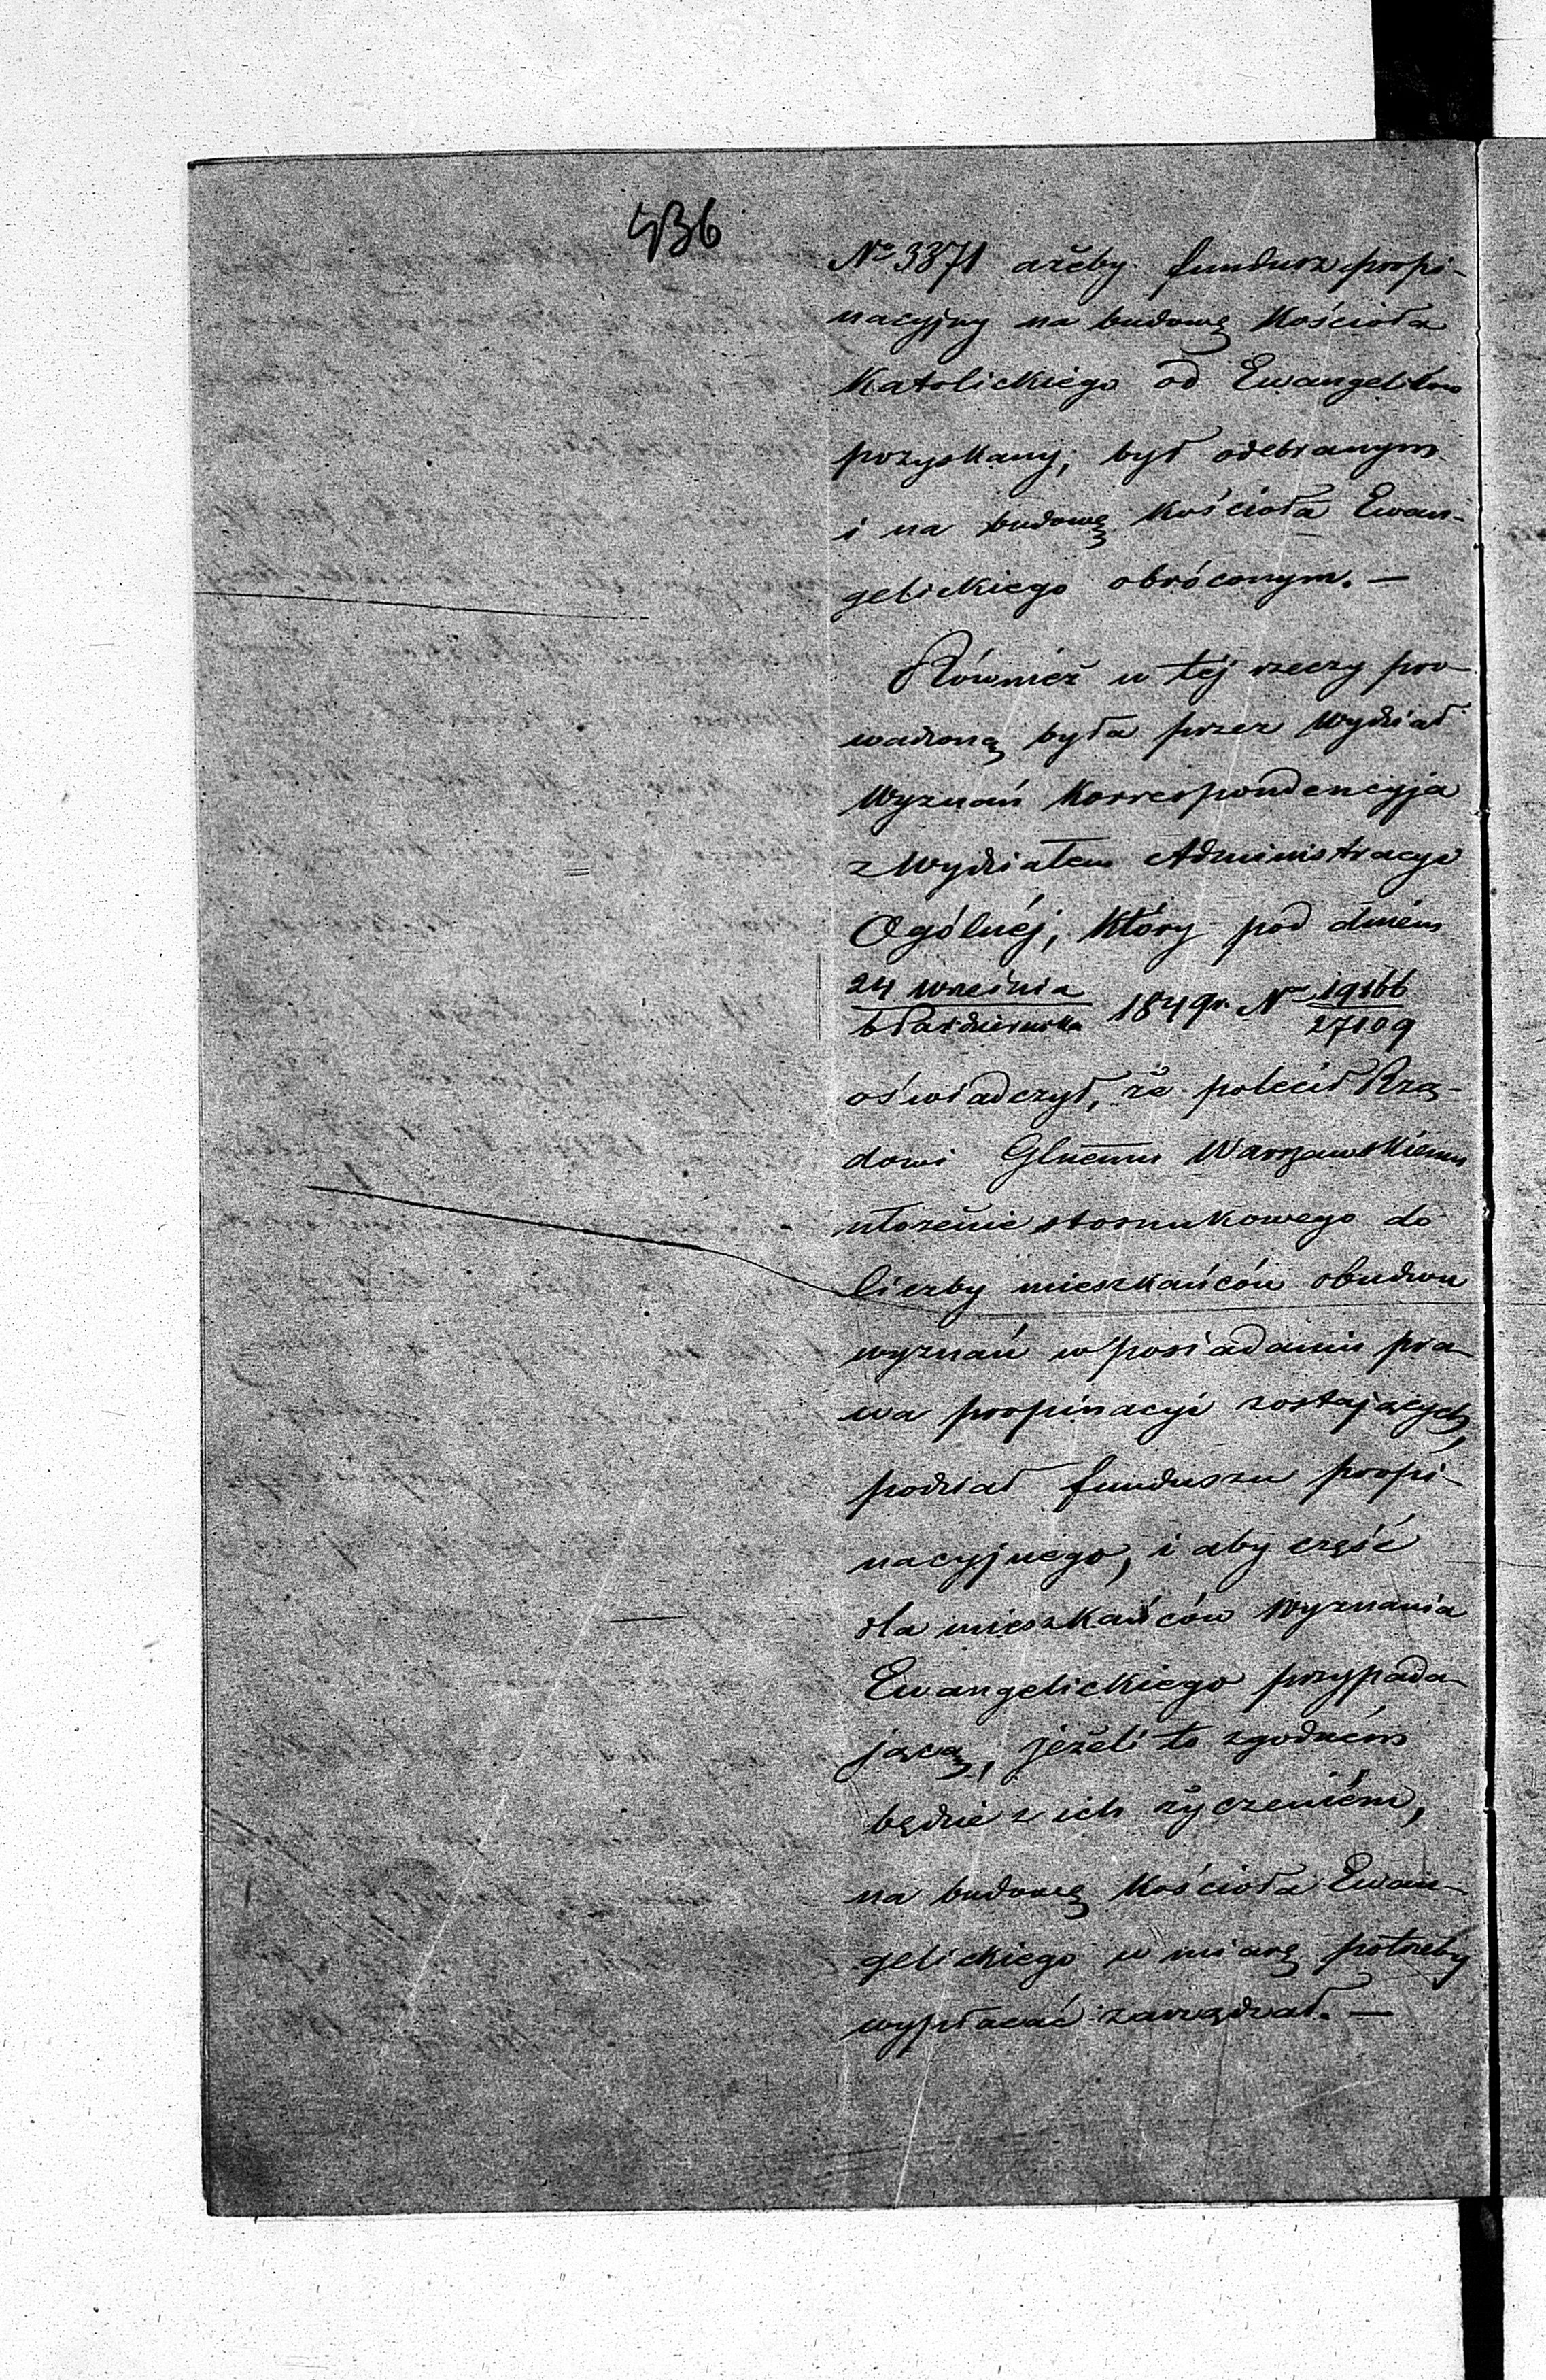 436
No 3371 ażeby fundusz propi-
nacyjny na budowę Kościoła
Katolickiego od Ewangelików
pozyskany, był odebranym
i na budowę Kościoła Ewan-
gelickiego obróconym. —
Również w téj rzeczy pro-
wadzoną była przez Wydział
Wyznań Korrespondencyja
z Wydziałem Administracyi
Ogólnéj, który pod dniém
24 Września / 6 Października 1849 r. No 19166 / 27109
oświadczył, że polecił Rzą-
dowi Glnemu Warszawskiemu
ułożenie stosunkowego do
liczby mieszkańców obudwu
wyznań w posiadaniu pra-
wa propinacyi zostających,
podział funduszu propi-
nacyjnego, i aby część
dla mieszkańców Wyznania
Ewangelickiego przypada-
jącą, jeżeli to zgodném
będzie z ich życzeniém,
na budowę Kościoła Ewan-
gelickiego w miarę potrzeby
wypłacać zarządzał. —